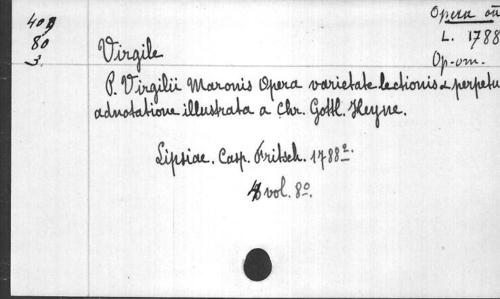 Opera om
40B
80
3.
L. 1788
Op-om.
Virgile
P. Virgilii Maronis Opera varietate lectionis & perpetu
adnotatione illustrata a Chr. Gottl. Heyne.
Lipsiae. Casp. Fritsch. 1788
vol. 8º.